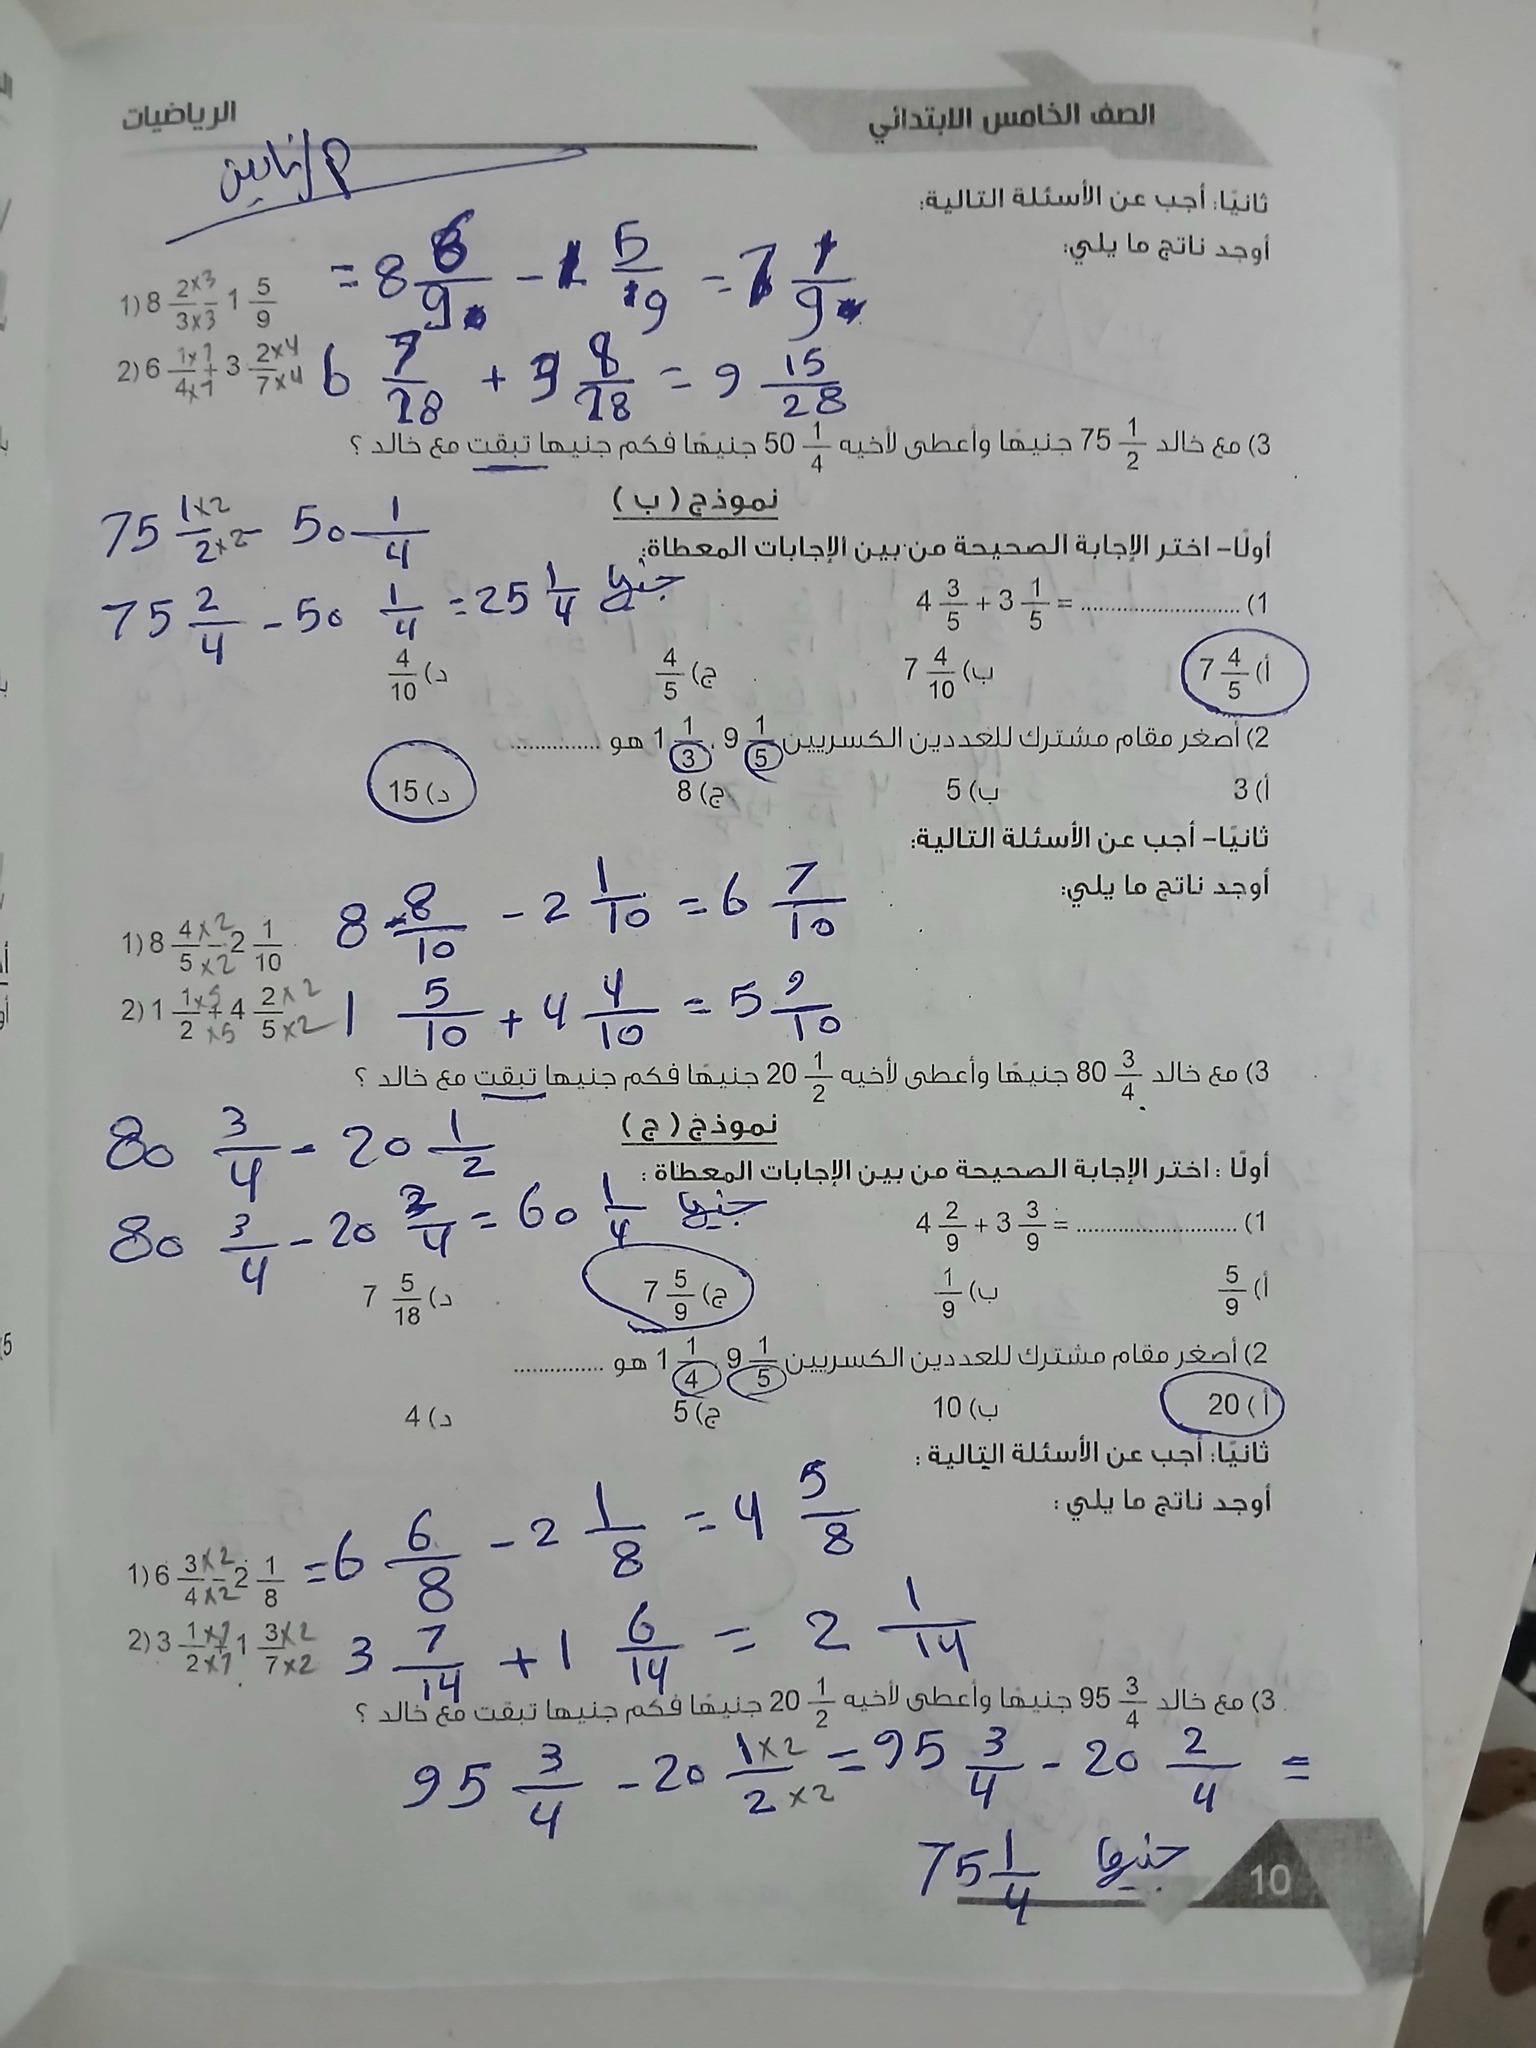 الصف الخامس الابتدائي الرياضيات
ثانيًا: أجب عن الأسئلة التالية:
أوجد ناتج ما يلي:
1) 8 2×3/3×3 - 1 5/9 = 8 6/9 - 1 5/9 = 7 1/9
2) 6 1×7/4×7 + 3 2×4/7×4 6 7/28 + 3 8/28 = 9 15/28
3) مع خالد 75 1/2 جنيهًا وأعطى لأخيه 50 1/4 جنيهًا فكم جنيها تبقت مع خالد ؟
75 1×2/2×2 - 50 1/4
75 2/4 - 50 1/4 = 25 1/4 جنيها
نموذج ( ب )
أولًا- اختر الإجابة الصحيحة من بين الإجابات المعطاة:
1) 4 3/5 + 3 1/5 = ..........................
أ) 7 4/5 ب) 7 4/10 ج) 4/5 د) 4/10
2) أصغر مقام مشترك للعددين الكسريين 9 1/5 , 1 1/3 هو ...............
أ) 3 ب) 5 ج) 8 د) 15
ثانيًا- أجب عن الأسئلة التالية:
أوجد ناتج ما يلي:
1) 8 4×2/5×2 - 2 1/10 8 8/10 - 2 1/10 = 6 7/10
2) 1 1×5/2×5 + 4 2×2/5×2 1 5/10 + 4 4/10 = 5 9/10
3) مع خالد 80 3/4 جنيهًا وأعطى لأخيه 20 1/2 جنيهًا فكم جنيها تبقت مع خالد ؟
80 3/4 - 20 1/2
80 3/4 - 20 2/4 = 60 1/4 جنيها
نموذج ( ج )
أولًا : اختر الإجابة الصحيحة من بين الإجابات المعطاة :
1) 4 2/9 + 3 3/9 = ..........................
أ) 5/9 ب) 1/9 ج) 7 5/9 د) 7 5/18
2) أصغر مقام مشترك للعددين الكسريين 9 1/5 , 1 1/4 هو ...............
أ) 20 ب) 10 ج) 5 د) 4
ثانيًا: أجب عن الأسئلة التالية :
أوجد ناتج ما يلي :
1) 6 3×2/4×2 - 2 1/8 = 6 6/8 - 2 1/8 = 4 5/8
2) 3 1×7/2×7 - 1 3×2/7×2 3 7/14 + 1 6/14 = 2 1/14
3) مع خالد 95 3/4 جنيهًا وأعطى لأخيه 20 1/2 جنيهًا فكم جنيها تبقت مع خالد ؟
95 3/4 - 20 1×2/2×2 = 95 3/4 - 20 2/4 =
75 1/4 جنيها
10